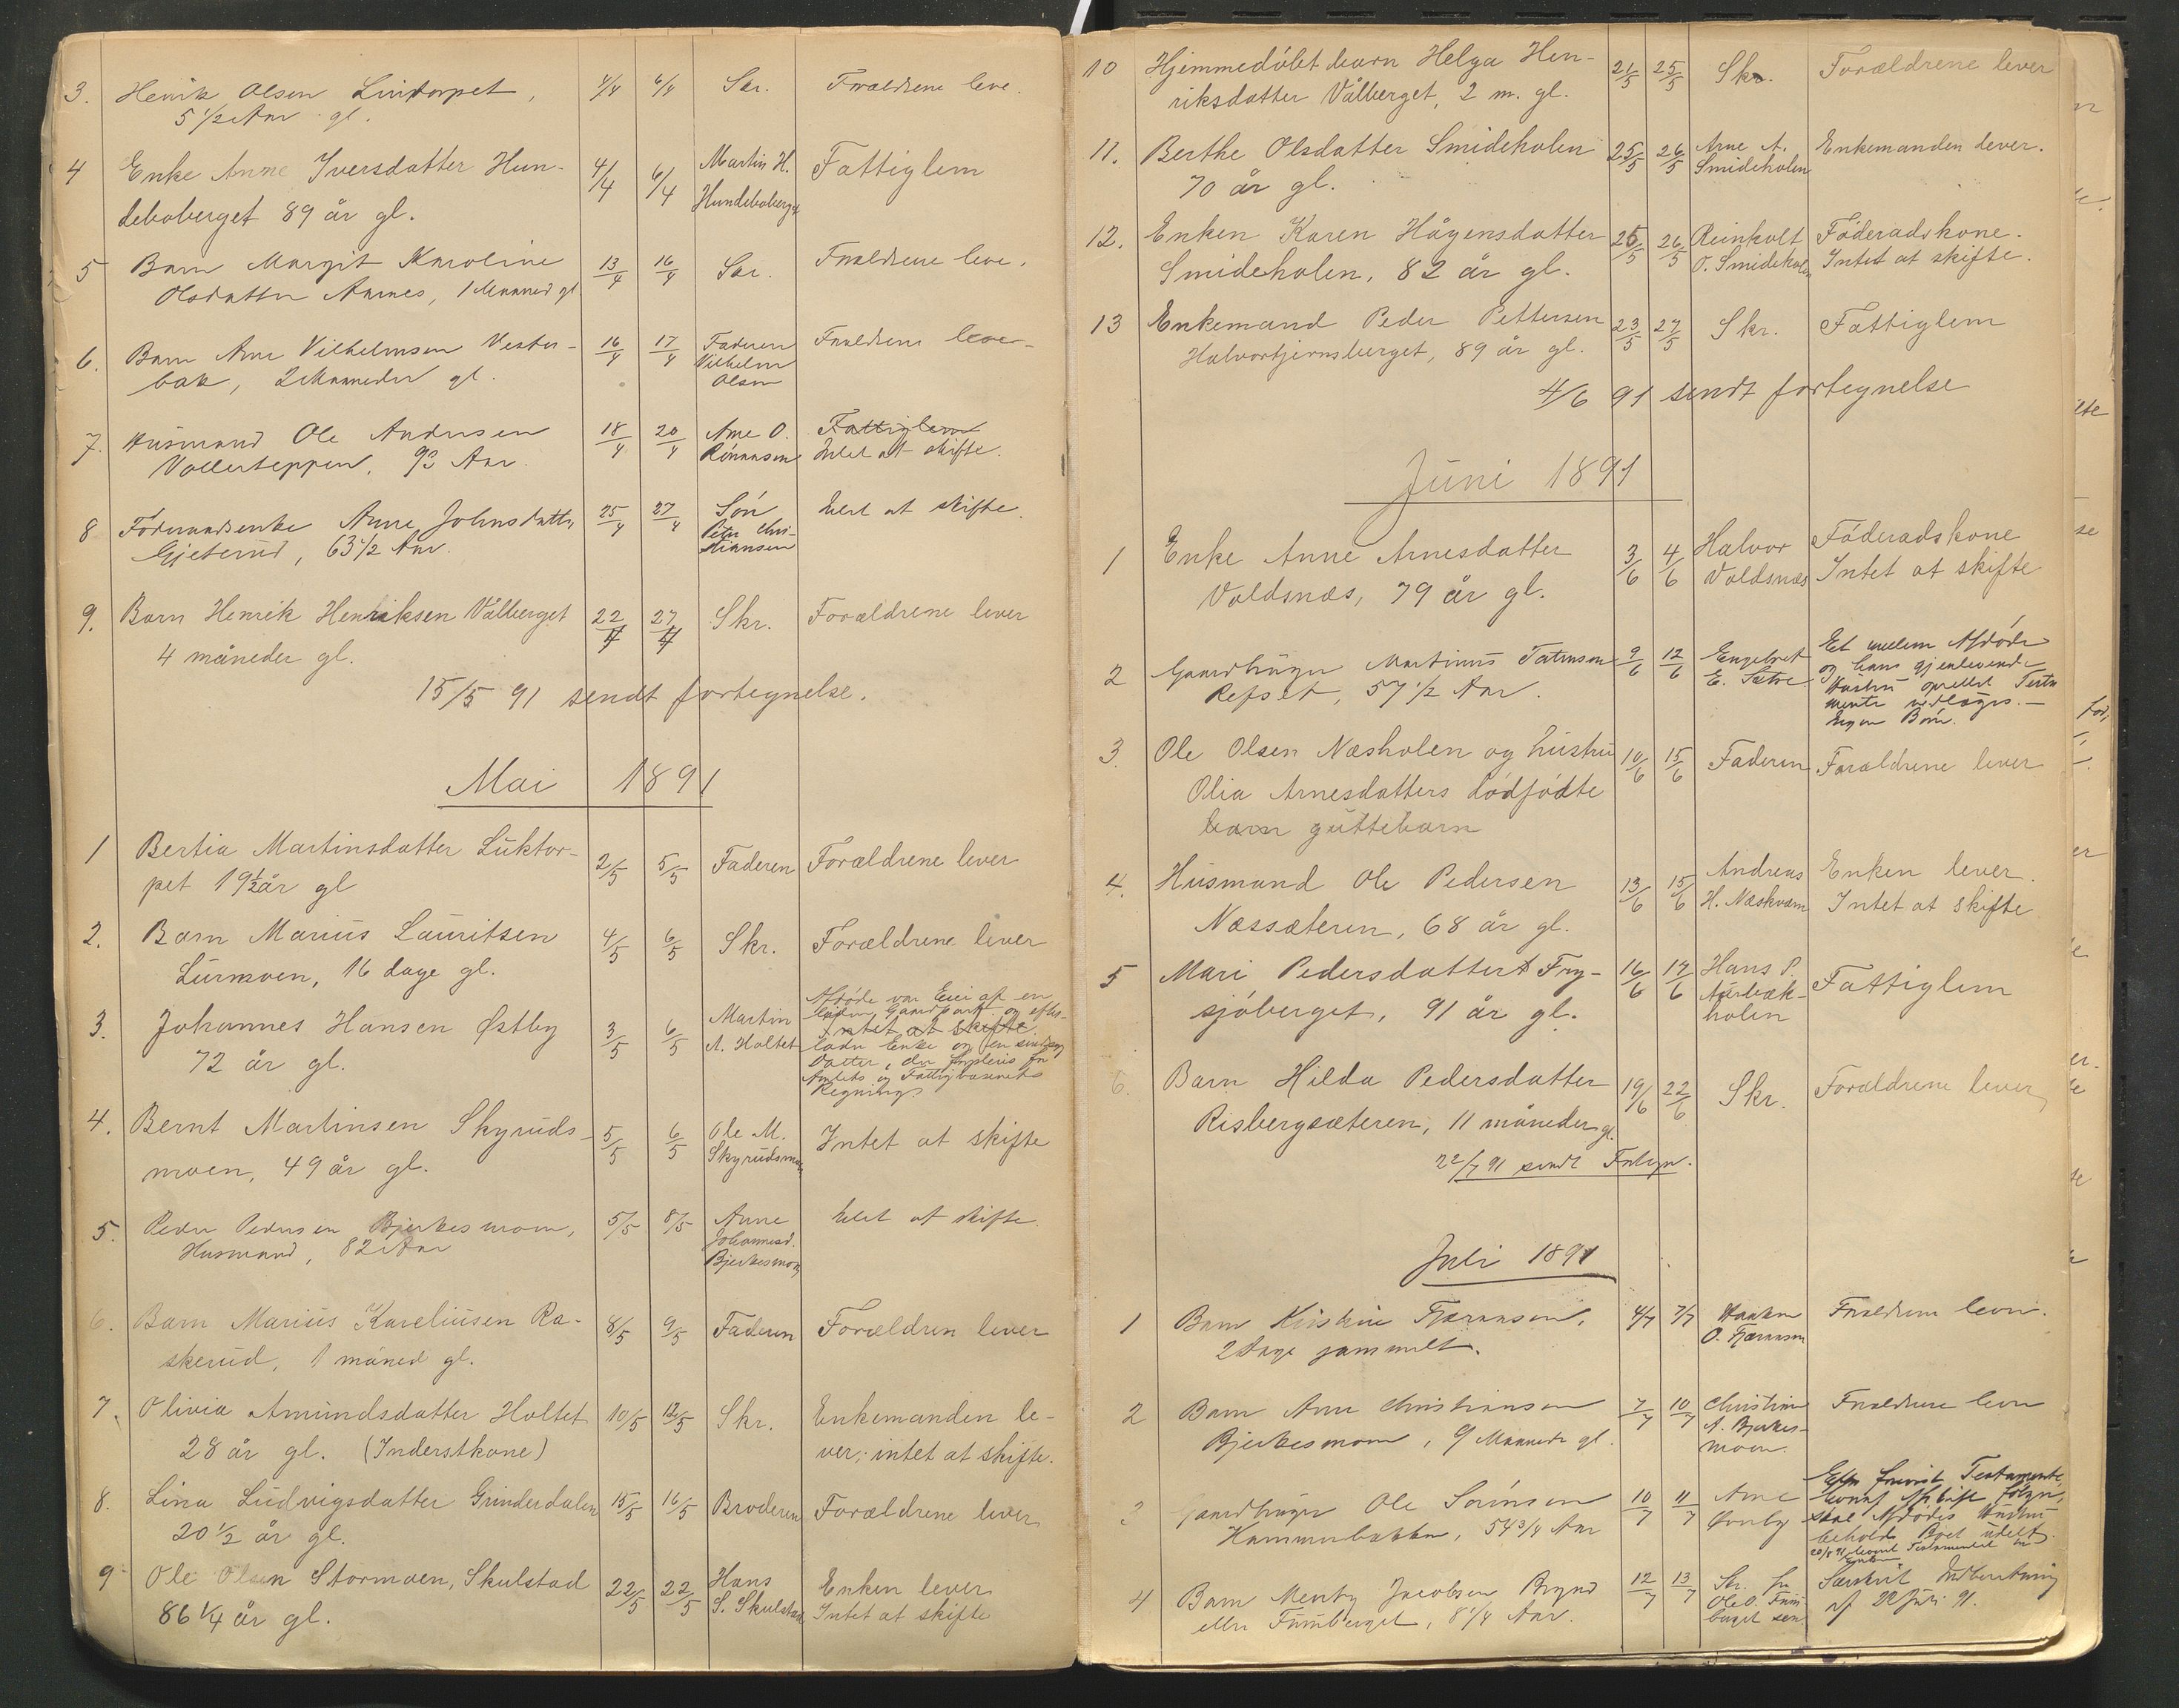 3. Henrik Olsen Lintorpet, 4/4 6/4 Skr. Forældrene leve.
5 1/2 Aar gl.
4 Enke Anne Iversdatter Hun- 4/4 6/4 Martin H. Fattiglem
deboberget 89 år gl. Hundeboberget
5 Barn Margit Karoline 13/4 16/4 Skr. Forældrene leve.
Olsdatter Aarnes, 1 Maaned gl
6. Barn Arne Vilhelmsen Vester- 16/4 17/4 Faderen Forældrene lever
bak, 2 Maaneder gl. Vilhelm
Olsen
7. Husmand Ole Andersen 18/4 20/4 Arne O. Fattiglem
Vollerteppen, Aar. Intet at skifte.
8 Anne Johnsdatter 25/4 27/4 Søn Intet at skifte.
Gjeterud, 63 1/2 Aar. Peter Chri-
stiansen
9. Barn Henrik Henriksen Vålberget 22/4 27/4 Skr. Forældrene lever
4 måneder gl.
15/5 91 sendt fortegnelse.
Mai 1891
1 Bertia Martinsdatter Luktor- 2/5 5/5 Faderen Forældrene lever
pet 19 1/2 år gl
2. Barn Marius Lauritsen 4/5 6/5 Skr. Forældrene lever
Lurmoen, 16 dage gl.
3. Johannes Hansen Østby 3/5 6/5 Martin Afdøde var Eier af en
72 år gl. A. Holtet Gaardpart og efter-
Intet at skifte.
lader Enke og en
Datter, der forpleies for
Amtets og Fattigvæsenets
Regning
4. Bernt Martinsen Skyruds- 5/5 6/5 Ole M. Intet at skifte
moen, 49 år gl. Skyrudsmoen
5. Peder Pedersen Bjerkesmoen, 5/5 8/5 Anne Intet at skifte.
Husmand, 82 Aar Johannesd.
Bjerkesmoen
6. Barn Marius Kareliusen Ra- 8/5 9/5 Faderen Forældren lever
skerud, 1 måned gl.
7. Olivia Amundsdatter Holtet 10/5 12/5 Skr. Enkemanden le-
28 år gl. (Inderstkone) ver; intet at skifte.
8. Lina Ludvigsdatter Grinderdalen 15/5 16/5 Broderen Forældrene lever
20 1/2 år gl.
9 Ole Olsen Stormoen, Skulstad 22/5 22/5 Hans Enken lever
86 1/4 år gl. S. Skulstad Intet at skifte
10 Hjemmedøbt barn Helga Hen- 21/5 25/5 Skr. Forældrene lever
riksdatter Vålberget, 2 m. gl.
11. Berthe Olsdatter Smideholen 25/5 26/5 Arne A. Enkemanden lever.
70 år gl. Smideholen
12. Enken Karen Hågensdatter 25/5 26/5 Reinholt Føderadskone.
Smideholen, 82 år gl. O. Smideholen Intet at skifte.
13 Enkemand Peder Pettersen 23/5 27/5 Skr. Fattiglem
Halvortjernsberget, 89 år gl.
4/6 91 sendt fortegnelse
Juni 1891
1 Enke Anne Arnesdatter 3/6 4/6 Halvor Føderadskone
Voldsnæs, 79 år gl. Voldsnæs Intet at skifte
2 Gaardbruger Martinus 9/6 12/6 Engebret Et mellem Afdøde
Refset, 57 1/2 Aar. E. Sætre og hans gjenlevende
Hustru oprettet Testa
mente vedlægges. –
Ingen Børn.
3. Ole Olsen Næsholen og hustru 10/6 15/6 Faderen Forældrene lever
Olia Arnesdatters dødfødte
barn guttebarn
4. Husmand Ole Pedersen 13/6 15/6 Andreas Enken lever.
Næssæteren, 68 år gl. H. Næskvam Intet at skifte
5 Mari Pedersdatter Fry- 16/6 17/6 Hans P. Fattiglem
sjøberget, 91 år gl. Aurbæk-
holen
6. Barn Hilda Pedersdatter 19/6 22/6 Skr. Forældrene lever
Risbergsæteren, 11 måneder gl.
22/7 91 sendt Fortegn.
Juli 1891
1 Barn Kristine Fjæransen, 4/7 7/7 Haaken Forældrene lever.
2 Dage gammelt. O. Fjæransen
2 Barn Arne Christiansen 7/7 10/7 Christian Forældrene lever
Bjerkesmoen, 9 Maaneder gl. A. Bjerkes-
moen.
3 Gaardbruger Ole Sørensen 10/7 11/7 Arne Testamente,
Hammerbakken, 54 3/4 Aar hvoraf Afskrift følger,
skal Afdødes Hustru
beholde Boet udelt.
20/8 91 Testamentet
4 Barn Jacobsen 12/7 13/7 Skr. Særskilt Indberetning
eller Furuberget, 8 1/4 Aar. Ole O. Furu- af 22 Juli 91.
berget